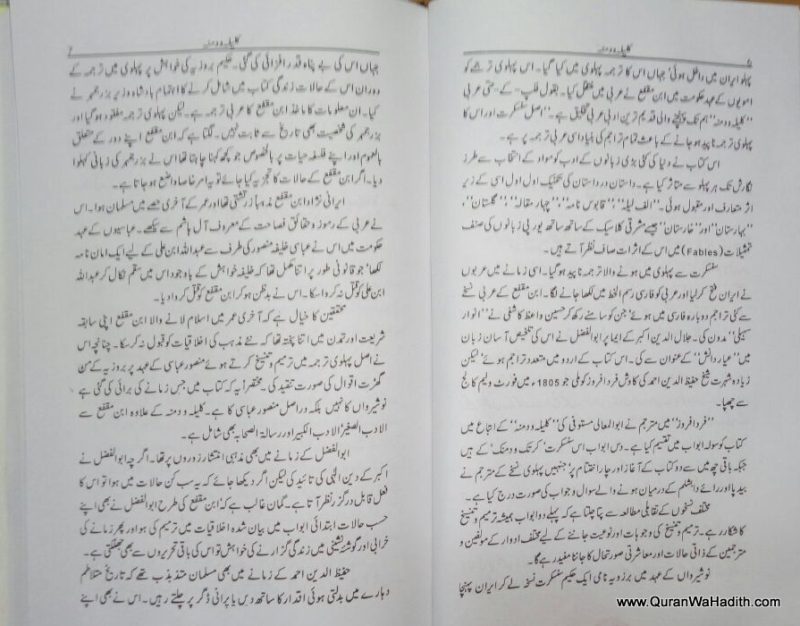 کلیلہ و دمنہ
6
پہلو ایران میں داخل ہوئی' جہاں اس کا ترجمہ پہلوی میں کیا گیا۔ اس پہلوی ترجمے کو
امویوں کے عہد حکومت میں ابن مقفع نے عربی میں منتقل کیا۔ بقول فلپ۔ کے۔ حتی عربی
"کلیلہ و دمنہ" ہم تک پہنچنے والی قدیم ترین ادبی عربی تخلیق ہے۔ "اصل سنسکرت اور اس کا
پہلوی ترجمہ ناپید ہو جانے کے باعث تمام تراجم کی بنیاد اسی عربی ترجمہ پر ہے۔
اس کتاب نے دنیا کی کئی بڑی زبانوں کے ادب کو مواد کے انتخاب سے طرز
نگارش تک ہر پہلو سے متاثر کیا ہے۔ داستان در داستان کی تکنیک اول اول اسی کے زیر
اثر متعارف اور مقبول ہوئی۔ "الف لیلہ"، "قابوس نامہ"، "چہار مقالہ"، "گلستان"،
"بہارستان" اور "خارستان" جیسے مشرقی کلاسیک کے ساتھ ساتھ یورپی زبانوں کی صنف
تمثیلات (Fables) میں اس کے اثرات صاف نظر آتے ہیں۔
سنسکرت سے پہلوی میں ہونے والا ترجمہ ناپید ہو گیا۔ اسی زمانے میں عربوں
نے ایران فتح کر لیا اور عربی کو فارسی رسم الخط میں لکھا جانے لگا۔ ابن مقفع کے عربی نسخے
سے کئی تراجم دوبارہ فارسی میں ہوئے' جن کو سامنے رکھ کر حسین واعظ کاشفی نے "انوار
سہیلی" مدون کی۔ جلال الدین اکبر کے ایما پر ابوالفضل نے اس کی تلخیص آسان زبان
میں "عیار دانش" کے عنوان سے کی۔ اس کتاب کے اردو میں متعدد تراجم ہوئے' لیکن
زیادہ شہرت شیخ حفیظ الدین احمد کی کاوش خرد افروز کو ملی جو 1805ء میں فورٹ ولیم کالج
سے چھپا۔
"خرد افروز" میں مترجم نے ابوالمعالی مستوفی کی "کلیلہ و دمنہ" کے اتباع میں
کتاب کو سولہ ابواب میں تقسیم کیا ہے۔ دس ابواب اس سنسکرت' کرتک و دمنک' کے ہیں
جبکہ باقی چھ میں سے دو کتاب کے آغاز اور چار اختتام پر' جنہیں پہلوی نسخے کے مترجم نے
بیدپا اور رائے دابشلم کے درمیان ہونے والے سوال و جواب کی صورت درج کیا ہے۔
مختلف نسخوں کے تقابلی مطالعہ سے پتا چلتا ہے کہ پہلے دو ابواب ہمیشہ ترمیم و تنسیخ
کا شکار رہے۔ ترمیم و تنسیخ کی وجوہات اور نوعیت جاننے کے لیے مختلف ادوار کے مولفین و
مترجمین کے ذاتی حالات اور معاشرتی صورتحال کا جاننا مفید رہے گا۔
نوشیرواں کے عہد میں برزویہ نامی ایک حکیم سنسکرت نسخہ لے کر ایران پہنچا
کلیلہ و دمنہ
7
جہاں اس کی بے پناہ قدر افزائی کی گئی۔ حکیم بروزیہ کی خواہش پر پہلوی میں ترجمہ کے
دوران اس کے حالات زندگی کتاب میں شامل کرنے کا اہتمام بادشاہ وزیر بزرجمہر نے
کیا۔ ان معلومات کا ماخذ ابن مقفع کا عربی ترجمہ ہے۔ لیکن پہلوی ترجمہ مفقود ہو گیا اور
بزرجمہر کی شخصیت بھی تاریخ سے ثابت نہیں۔ لگتا ہے کہ ابن مقفع اپنے دور کے متعلق
بالعموم اور اپنے فلسفہ حیات پر بالخصوص جو کچھ کہنا چاہتا تھا اس نے بزرجمہر کی زبانی کہلوا
دیا۔ اگر ابن مقفع کے حالات کا تجزیہ کیا جائے تو یہ امر خاصا واضح ہو جاتا ہے۔
ایرانی نژاد ابن مقفع مذہباً زرتشتی تھا اور عمر کے آخری حصے میں مسلمان ہوا۔ اس
نے عربی کے رموز و حقائق فصاحت کے معروف آل ہاشم سے سیکھے۔ عباسیوں کے عہد
حکومت میں اس نے عباسی خلیفہ منصور کی طرف سے عبداللہ ابن علی کے لیے ایک امان نامہ
لکھا' جو قانونی طور پر اتنا مکمل تھا کہ خلیفہ خواہش کے باوجود اس میں سقم نکال کر عبداللہ
ابن علی کو قتل نہ کروا سکا۔ اس نے بدظن ہو کر ابن مقفع کو قتل کروا دیا۔
محققین کا خیال ہے کہ آخری عمر میں اسلام لانے والا ابن مقفع اپنی سابقہ
شریعت اور تمدن میں اتنا پختہ تھا کہ نئے مذہب کی اخلاقیات کو قبول نہ کر سکا۔ چنانچہ اس
نے اصل پہلوی ترجمہ میں ترمیم و تنسیخ کرتے ہوئے منصور عباسی کے عہد پر بروزیہ کے من
گھڑت اقوال کی صورت تنقید کی۔ مختصراً یہ کہ کتاب میں جس زمانے کی برائی کی گئی ہے
نوشیرواں کا نہیں بلکہ دراصل منصور عباسی کا ہے۔ کلیلہ و دمنہ کے علاوہ ابن مقفع سے
الادب الصغیر' الادب الکبیر اور رسالۃ الصحابہ بھی شامل ہے۔
ابوالفضل کے زمانے میں بھی مذہبی انتشار زوروں پر تھا۔ اگرچہ ابوالفضل نے
اکبر کے دین الٰہی کی تائید کی لیکن اگر دیکھا جائے کہ یہ سب کن حالات میں ہوا تو اس کا
فعل قابل درگزر نظر آتا ہے۔ گمان غالب ہے کہ ابن مقفع کی طرح ابوالفضل نے بھی اپنے
حسب حالات ابتدائی ابواب میں بیان شدہ اخلاقیات میں ترمیم کی ہو اور پھر زمانے کی
خرابی اور گوشہ نشینی میں زندگی گزارنے کی خواہش تو اس کی باقی تحریروں سے بھی جھلکتی ہے۔
حفیظ الدین احمد کے زمانے میں بھی مسلمان متذبذب تھے کہ تاریخ متلاطم
دہارے میں بدلتی ہوئی اقدار کا ساتھ دیں یا پرانی ڈگر پر چلتے رہیں۔ اس نے بھی اپنے
www.QuranWaHadith.com